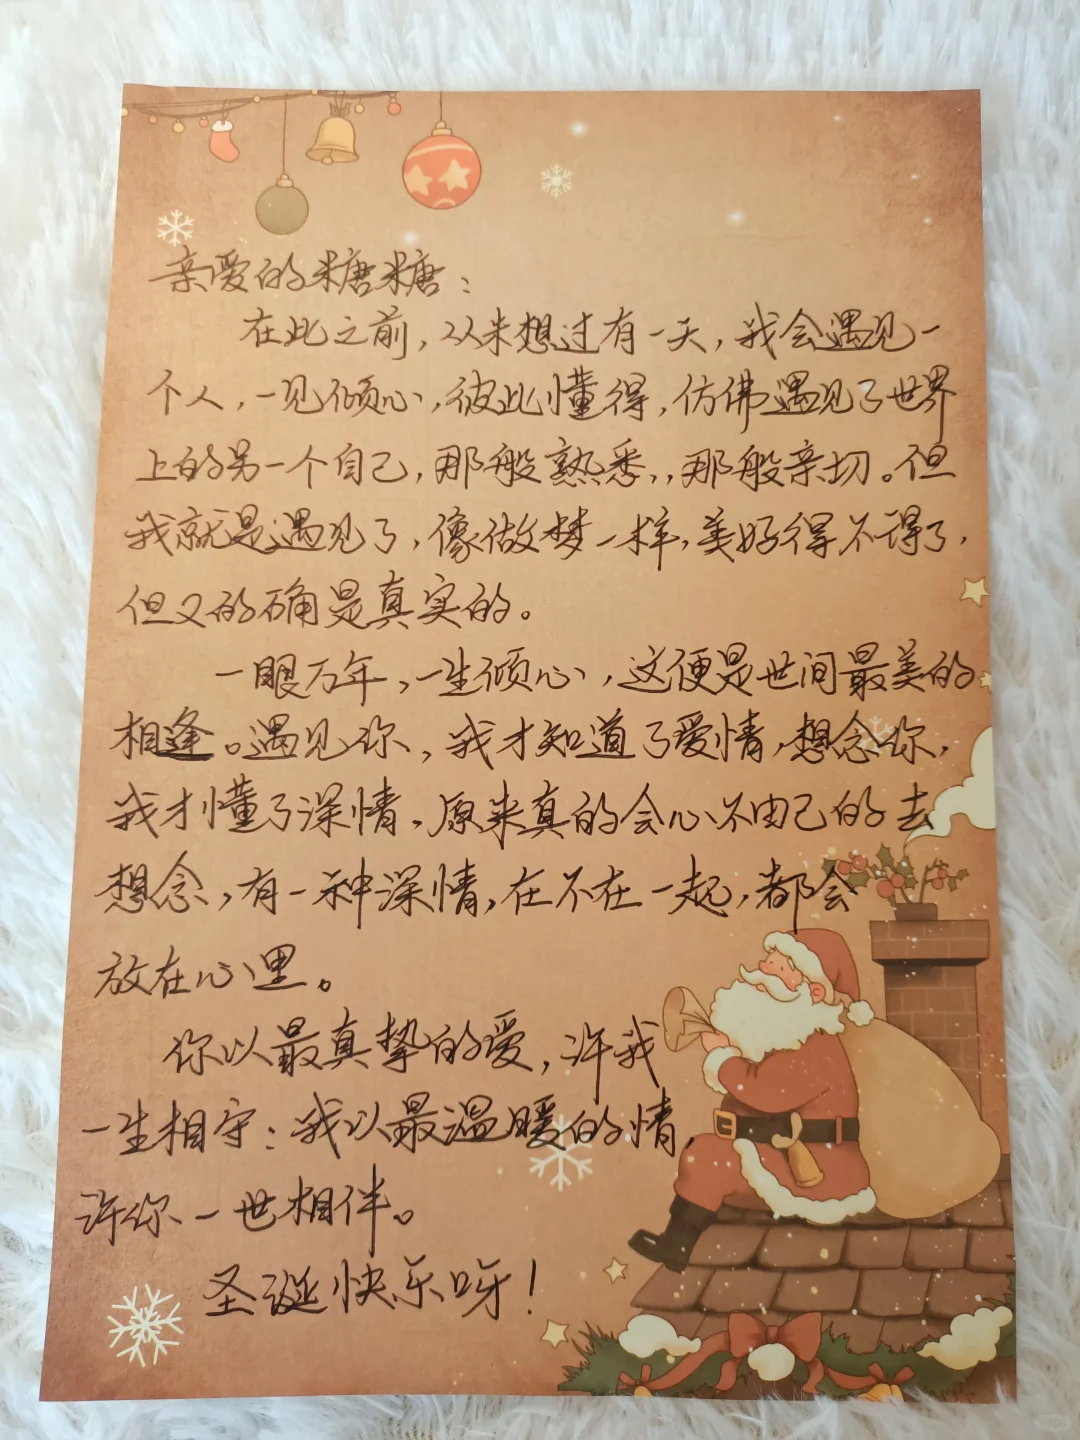 亲爱的糖糖：
在此之前，从未想过有一天，我会遇见一
个人，一见倾心，彼此懂得，仿佛遇见了世界
上的另一个自己，那般熟悉，，那般亲切。但
我就是遇见了，像做梦一样，美好得不得了，
但又的确是真实的。
一眼万年，一生倾心，这便是世间最美的
相逢。遇见你，我才知道了爱情，想念你，
我才懂了深情，原来真的会心不由己的去
想念，有一种深情，在不在一起，都会
放在心里。
你以最真挚的爱，许我
一生相守：我以最温暖的情，
许你一世相伴。
圣诞快乐呀！